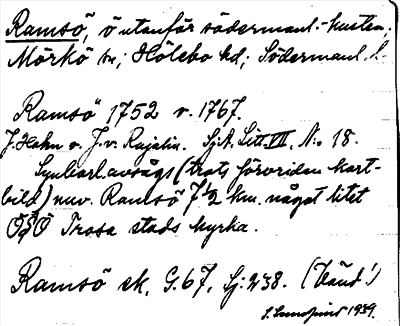 Ramsö, ö utanför södermanl.-kusten;
Mörkö sn; Hölebo hd; Södermanl. l.
Ramsö 1752 r. 1767.
J. Hahn o. J. v. Rajalin. SjA. Litt. VII. N:o 18.
Synbarl. avsågs (trots förvriden kart-
bild) nuv. Ramsö 7 1/2 km. något litet
ÖSÖ Trosa stads kyrka.
Ramsö ek. G. 67, Sj: 238. (Vänd!)
1939.